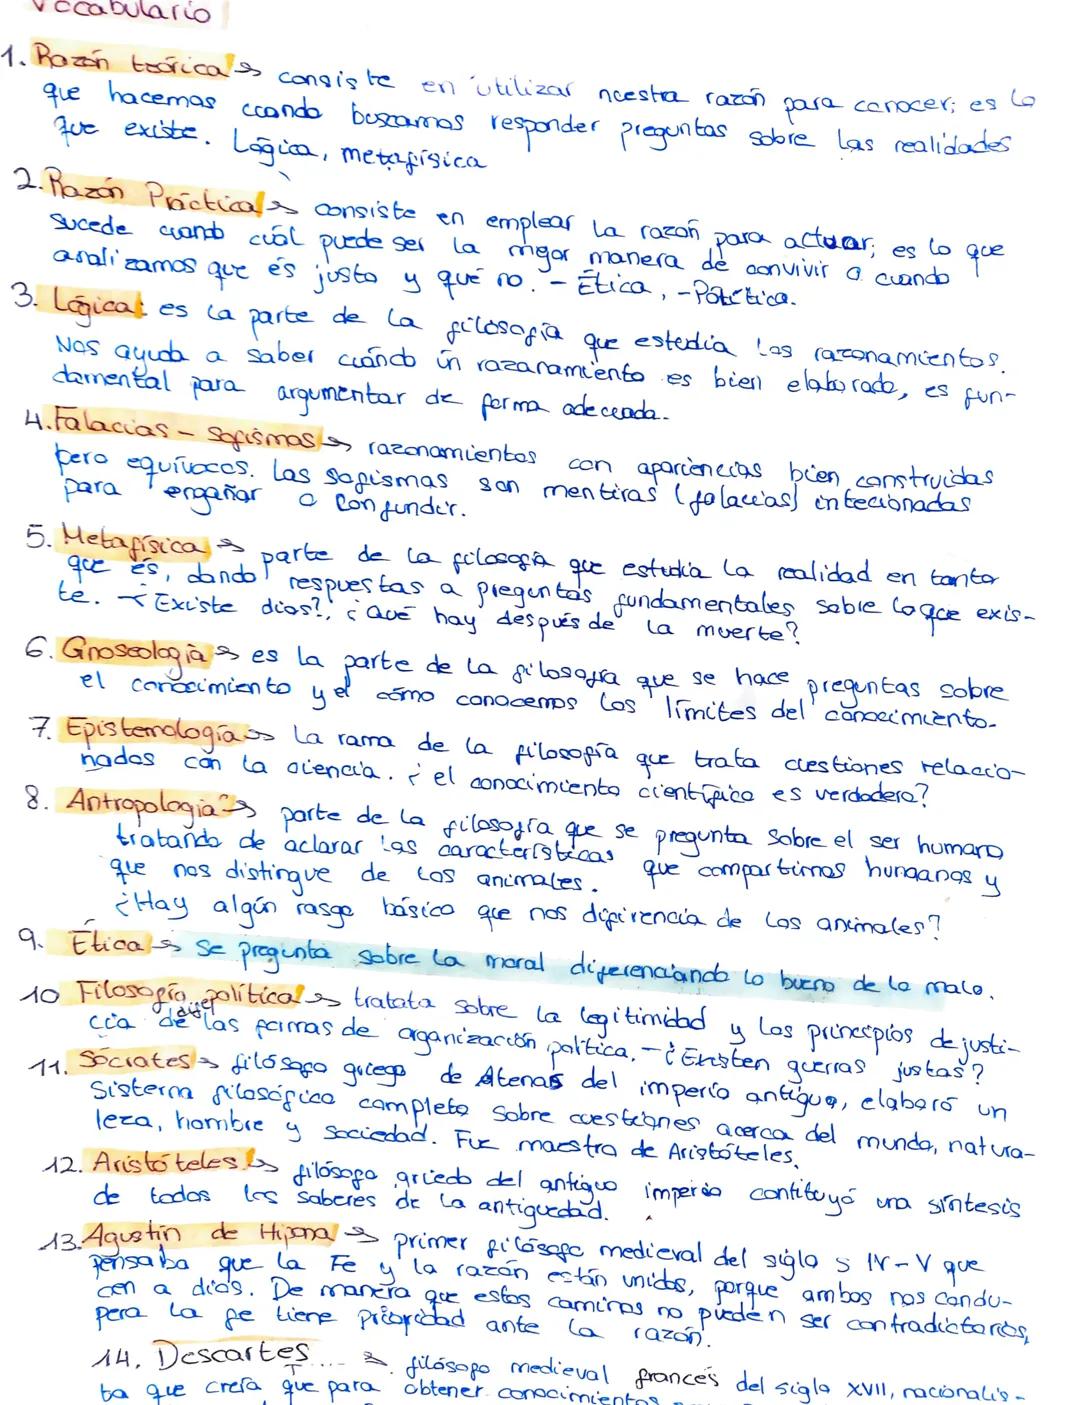 Vocabulario
1. Razón teórica → consiste en utilizar nuestra razón para conocer; es lo
que hacemos cuando buscamos responder preguntas sobre las realidades
que existe. Lógica, metafísica
2. Razón Práctica → consiste en emplear la razón para actuar; es lo que
sucede cuando cuál puede ser la mejor manera de convivir o cuando
analizamos que és justo y qué no. - Ética, - Política.
3. Lógica: es la parte de la filosofía que estudia los razonamientos.
Nos ayuda a saber cuándo un razonamiento es bien elaborado, es fun-
damental para argumentar de forma adecuada.
4. Falacias - Sofismas → razonamientos con apariencias bien construidas
pero equívocos. Los sofismas son mentiras (falacias) intecionadas
para engañar o confundir.
5. Metafísica → parte de la filosofía que estudia la realidad en tanto
que és, dando respuestas a preguntas fundamentales sobre lo que exis-
te. - ¿Existe dios?, ¿Qué hay después de la muerte?
6. Gnoseología → es la parte de la filosofía que se hace preguntas sobre
el conocimiento y el cómo conocemos los límites del conocimiento.
7. Epistemología → La rama de la filosofía que trata cuestiones relacio-
nados con la ciencia. ¿el conocimiento científico es verdadero?
8. Antropología → parte de la filosofía que se pregunta sobre el ser humano
tratando de aclarar las características que compartimos humanos y
que nos distingue de los animales.
¿Hay algún rasgo básico que nos difirencia de los animales?
9. Ética → se pregunta sobre la moral diferenciando lo bueno de lo malo.
10 Filosofía política → tratata sobre la legitimidad y los principios de justi-
cia de las formas de organización política. - ¿Existen guerras justas?
11. Sócrates → filósofo griego de Atenas del imperio antiguo, elaboró un
sistema filosófico completo sobre cuestiones acerca del mundo, natura-
leza, hombre y sociedad. Fue maestro de Aristóteles.
12. Aristóteles → filósofo griedo del antiguo imperio contituyó una síntesis
de todos los saberes de la antiguedad.
13. Agustín de Hipona → primer filósofo medieval del siglo s IV-V que
pensaba que la Fe y la razón están unidos, porque ambos nos condu-
cen a dios. De manera que estos caminos no pueden ser contradictorios,
pero la fe tiene prioridad ante la razón.
14. Descartes → filósofo medieval francés del siglo XVII, nacionalis-
ta que creía que para obtener conocimientos